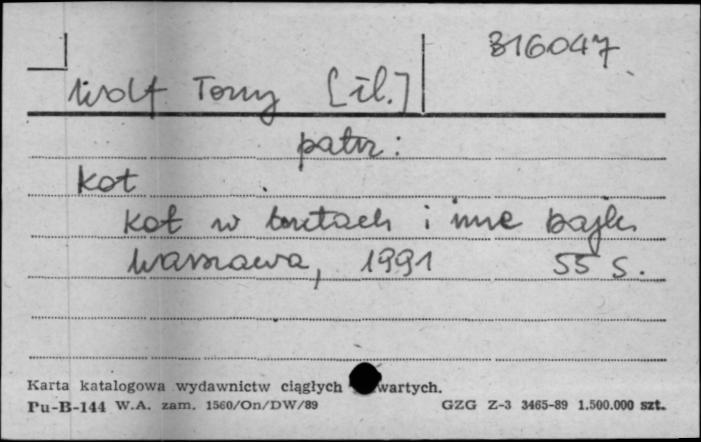 316047
Wolf Tony [il.]
patrz:
Kot
Kot w butach i inne bajki
Warszawa, 1991 55 s.
Karta katalogowa wydawnictw ciągłych i zwartych.
Pu-B-144 W.A. zam. 1560/On/DW/89 GZG Z-3 3465-89 1.500.000 szt.